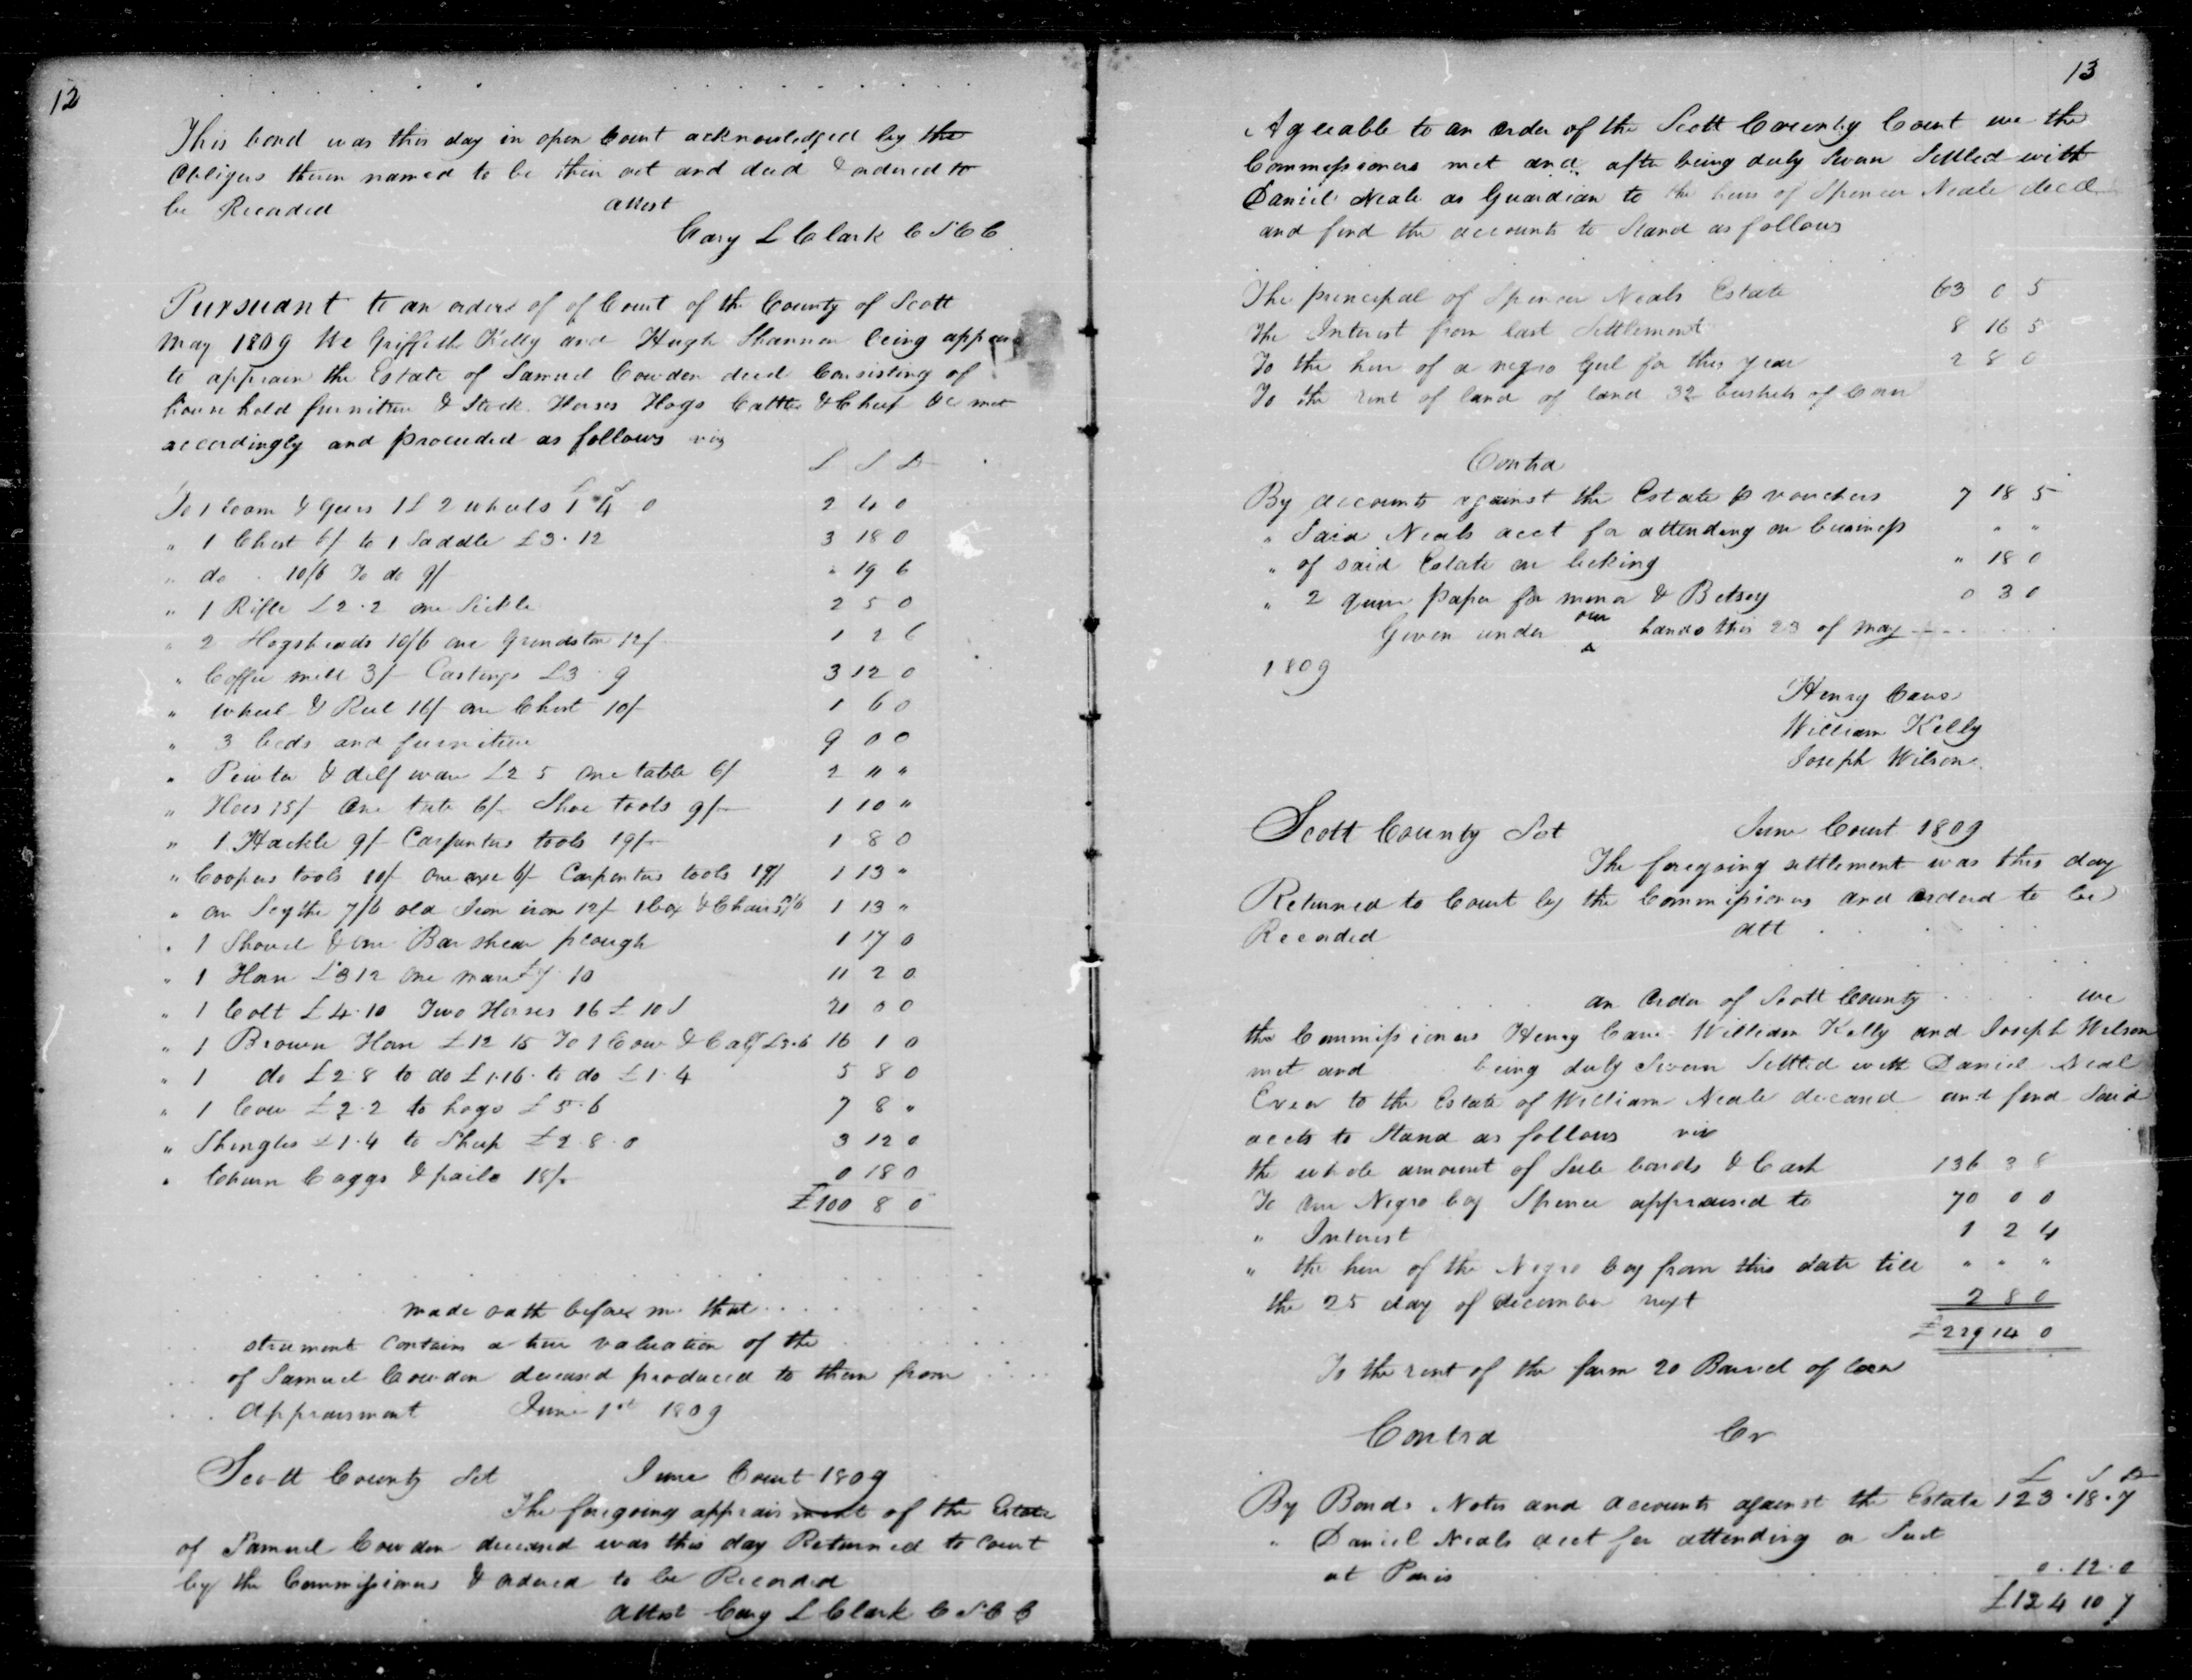 12
This bond was this day in open Court acknowledged by the
obligers therein named to be their act and deed & ordered to
be Recorded attest
Cary L Clark C S C C
Pursuant to an order of of Court of the County of Scott
May 1809 We Griffith Kelly and Hugh Shannon being
to apprase the Estate of Samuel Cowden decd Consisting of
household furniture & Stock Horses Hogs Cattle & Sheep &c met
accordingly and proceeded as follows viz
L S D
To 1 loom & gears 1£ 2 wheels 1 4 0 2 4 0
" 1 Chest 6/ to 1 Saddle £3.12 3 18 0
" do 10/6 To do 9/ " 19 6
" 1 Rifle £2.2 one Sickle 2 5 0
" 2 Hogsheads 10/6 one Grindston 12/ 1 2 6
" Coffee mill 3/ Castings £3.9 3 12 0
" Wheel & Reel 16/ one Chest 10/ 1 6 0
" 3 beds and furniture 9 0 0
" Pewter & delf ware £2 5 one table 6/ 2 11 "
" Hoes 15/ One tub 6/ Shoe tools 9/ 1 10 "
" 1 Hackle 9/ Carpenters tools 19/ 1 8 0
" Coopers tools 10/ one axe 6/ Carpenters tools 19/ 1 13 "
" on Scythe 7/6 old Iron iron 12/ 1 box & Chairs 1 13 "
" 1 Shovel & one Barshear plough 1 17 0
" 1 Horse £3 12 one mare £7.10 11 2 0
" 1 Colt £4.10 Two Horses 16 £ 10 S 21 0 0
" 1 Brown Horse £12 15 To 1 Cow & Calf £3.6 16 1 0
" 1 do £2.8 to do £1.16 to do £1.4 5 8 0
" 1 Cow £2.2 to hogs £5.6 7 8 "
" Shingles £1.4 to Sheep £2.8.0 3 12 0
" Churn Caggs & pails 18/ 0 18 0
£100 8 0
made oath before me that
strument contains a true valuation of the
of Samuel Cowden deceased produced to them from
appraisment June 1st 1809
Scott County Sct June Court 1809
The foregoing appraisment of the Estate
of Samuel Cowden deceased was this day Returned to Court
by the Commissioners & ordered to be Recorded
Attest Cary L Clark C S C C
13
Agreable to an order of the Scott County Court we the
Commissioners met and after being duly Sworn Settled with
Daniel Neale as Guardian to the heirs of Spencer Neale decd
and find the accounts to Stand as follows
The principal of Spencer Neals Estate 63 0 5
The Interest from last Settlement 8 16 5
To the hire of a negro Girl for this year 2 8 0
To the rent of land of land 32 bushels of Corn
Contra
By accounts against the Estate p vouchers 7 18 5
" Said Neals acct for attending on business " "
" of said Estate on " 18 0
" 2 quire paper for & Betsey 0 3 0
Given under our hands this 23 of May
1809
Henry Cave
William Kelly
Joseph Wilson
Scott County Sct June Court 1809
The foregoing settlement was this day
Returned to Court by the Commissioners and ordered to be
Recorded att
an order of Scott County we
the Commissioners Henry Cave William Kelly and Joseph Wilson
met and being duly Sworn Settled with Daniel Neal
Exear to the Estate of William Neale deceased and find Said
accts to Stand as follows viz
the whole amount of Sale bonds & Cash 136 3 8
To one Negro boy Spence appraised to 70 0 0
" Interest 1 2 4
" the hire of the Negro boy from this date till " " "
the 25 day of december next 2 8 0
£229 14 0
To the rent of the farm 20 Barrel of Corn
Contra Cr
£ S D
By Bonds Notes and accounts against the Estate 123.18.7
" Daniel Neals acct for attending a Suit
at Paris 0.12.0
£124 10 7